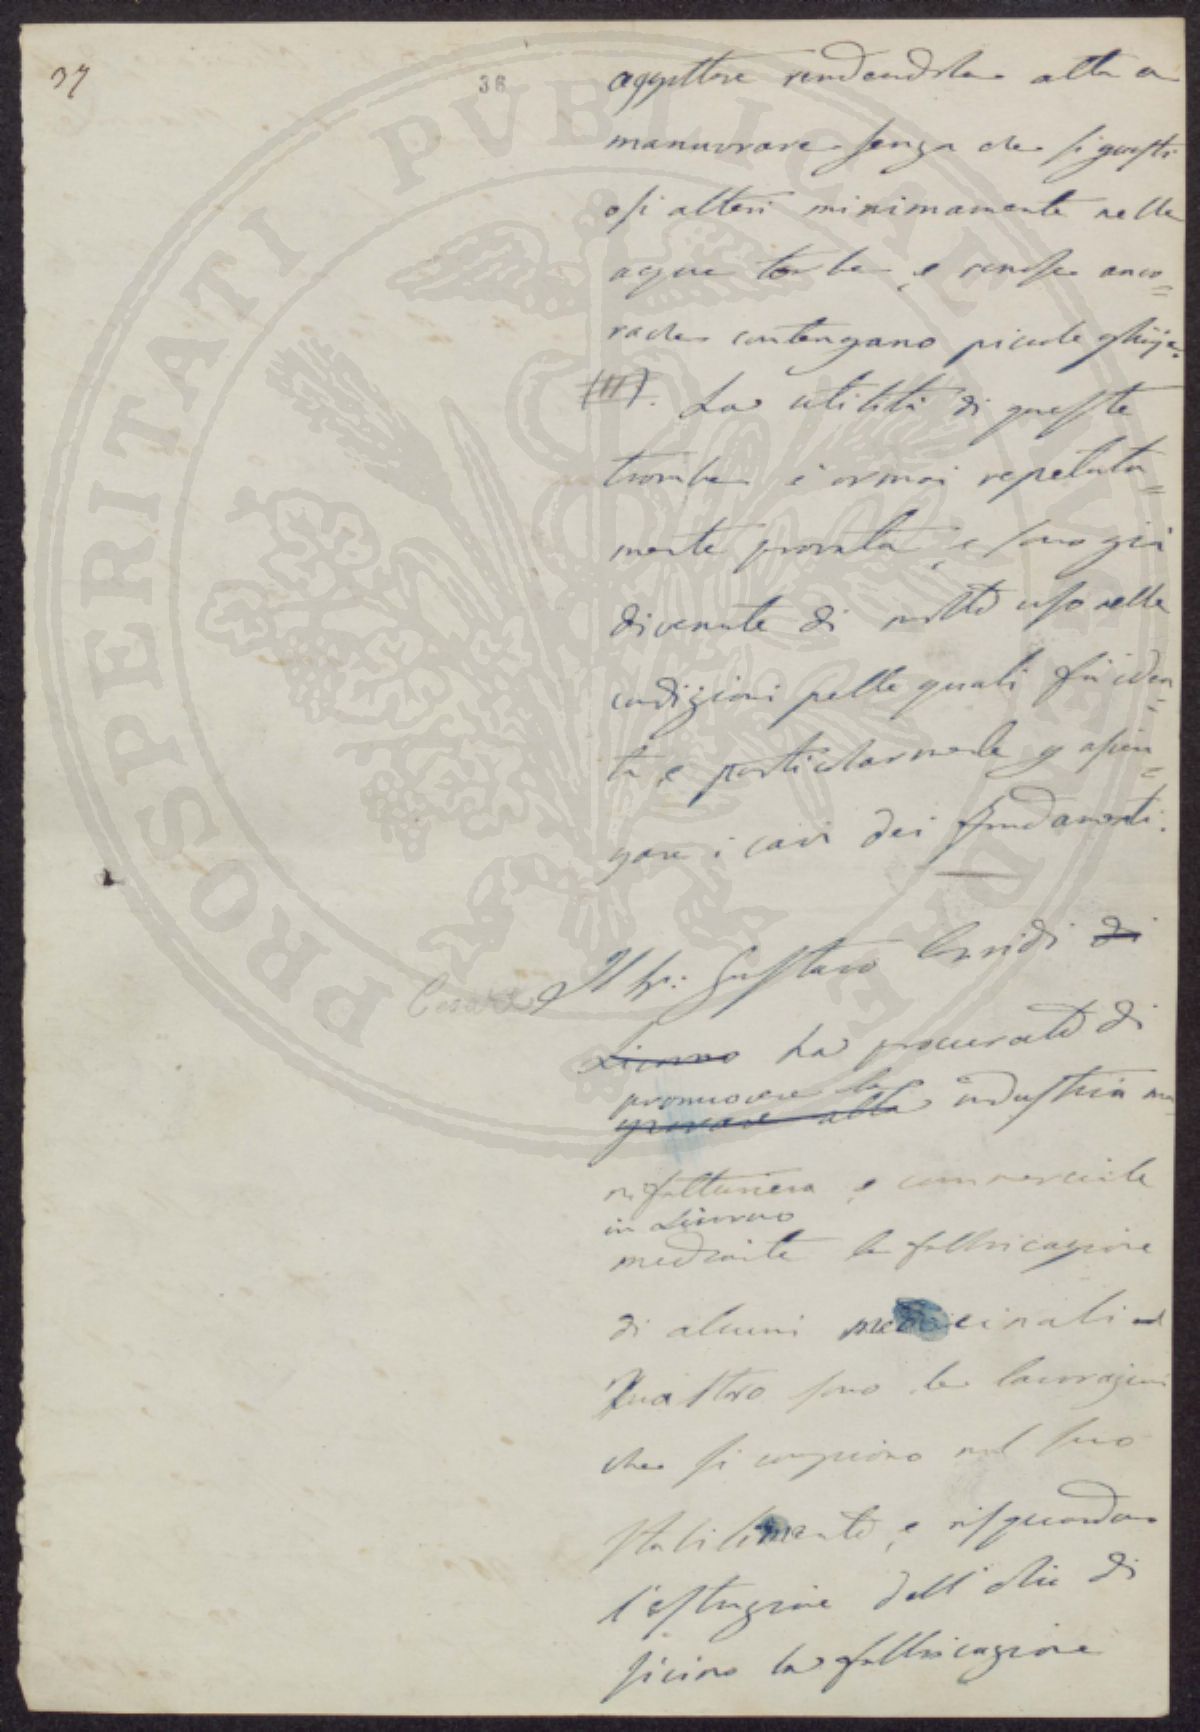 37
36
oggettore rendendola atta a
manuvrare senza che si guasti
o si alteri minimamente nelle
acque torbe, e rensse anco=
rache contengano piccole ghiaje.
(11). La utilità di queste
trombe è ormai repetuta=
mente provata, e sono già
divenute di molto uso nelle
condizioni pelle quali fù idea=
ta, e particolarmente p asciu=
gare i cavi dei fondamenti.
Il Sr: Gustavo Corridi di
Cesare
Livorno ha procurato di
promuovere la
giovare alla industria ma
nifatturiera e commerciale
in Livorno
mediante la fabbricazione
di alcuni medicinali
Quattro sono le lavorazioni
che si compiono nel suo
stabilimento, e risguardano
l'estrazione dell'olio di
ricino la fabbricazione
PROSPERITATI PUBLICAE AUGENDAE